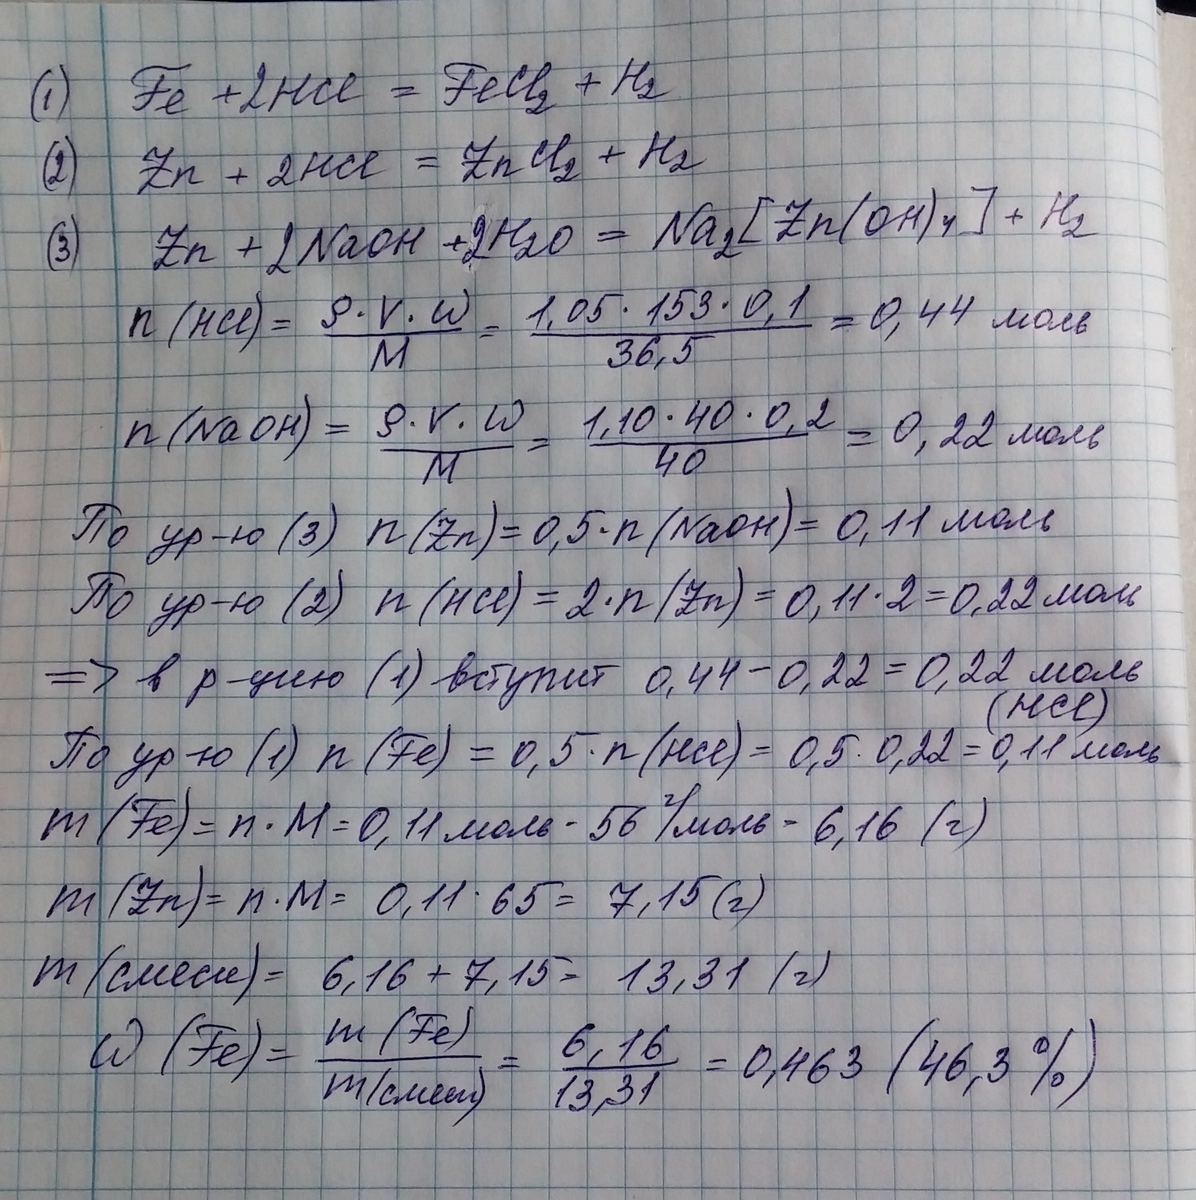 (1) Fe + 2HCl = FeCl₂ + H₂
(2) Zn + 2HCl = ZnCl₂ + H₂
(3) Zn + 2NaOH + 2H₂O = Na₂[Zn(OH)₄] + H₂
n(HCl) = ρ·V·W / M = 1,05·153·0,1 / 36,5 = 0,44 моль
n(NaOH) = ρ·V·W / M = 1,10·40·0,2 / 40 = 0,22 моль
По ур-ю (3) n(Zn) = 0,5·n(NaOH) = 0,11 моль
По ур-ю (2) n(HCl) = 2·n(Zn) = 0,11·2 = 0,22 моль
=> в р-цию (1) вступит 0,44 - 0,22 = 0,22 моль
(HCl)
По ур-ю (1) n(Fe) = 0,5·n(HCl) = 0,5·0,22 = 0,11 моль
m(Fe) = n·M = 0,11 моль · 56 г/моль = 6,16 (г)
m(Zn) = n·M = 0,11·65 = 7,15 (г)
m(смеси) = 6,16 + 7,15 = 13,31 (г)
W(Fe) = m(Fe) / m(смеси) = 6,16 / 13,31 = 0,463 (46,3%)